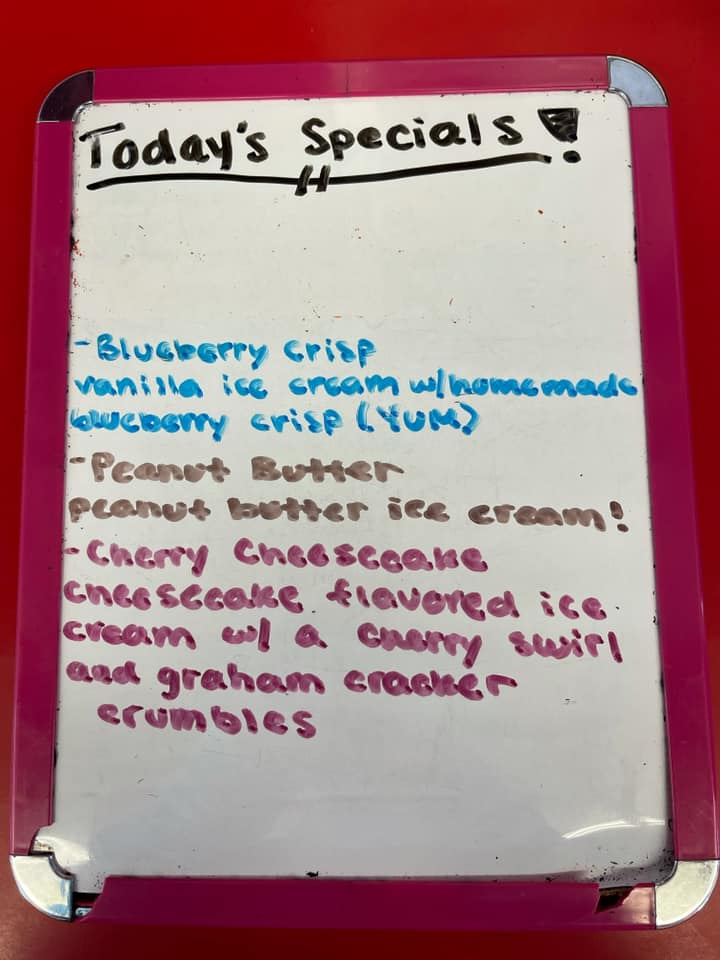 Today's Specials!
-Blueberry crisp
vanilla ice cream w/homemade
blueberry crisp (YUM)
-Peanut Butter
peanut butter ice cream!
-Cherry Cheesecake
cheesecake flavored ice
cream w/ a cherry swirl
and graham cracker
crumbles